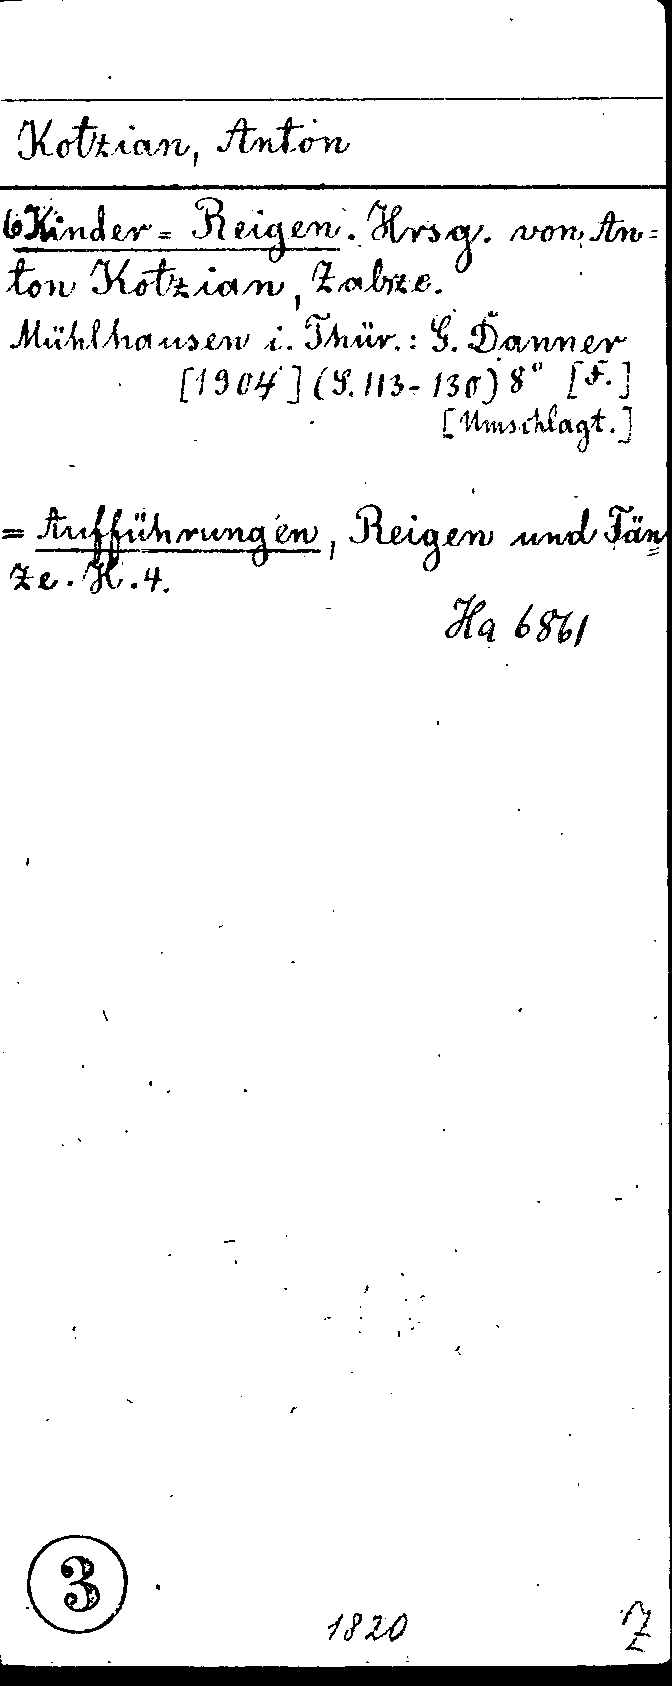 Kotzian, Anton
6 Kinder=Reigen. Hrsg. von An=
ton Kotzian, Zabrze.
Mühlhausen i. Thür.: G. Danner
[1904] (S. 113-130) 8° [F.]
[Umschlagt.]
= Aufführungen, Reigen und Tän=
ze. H. 4.
Ha 6861
3
1820
Z